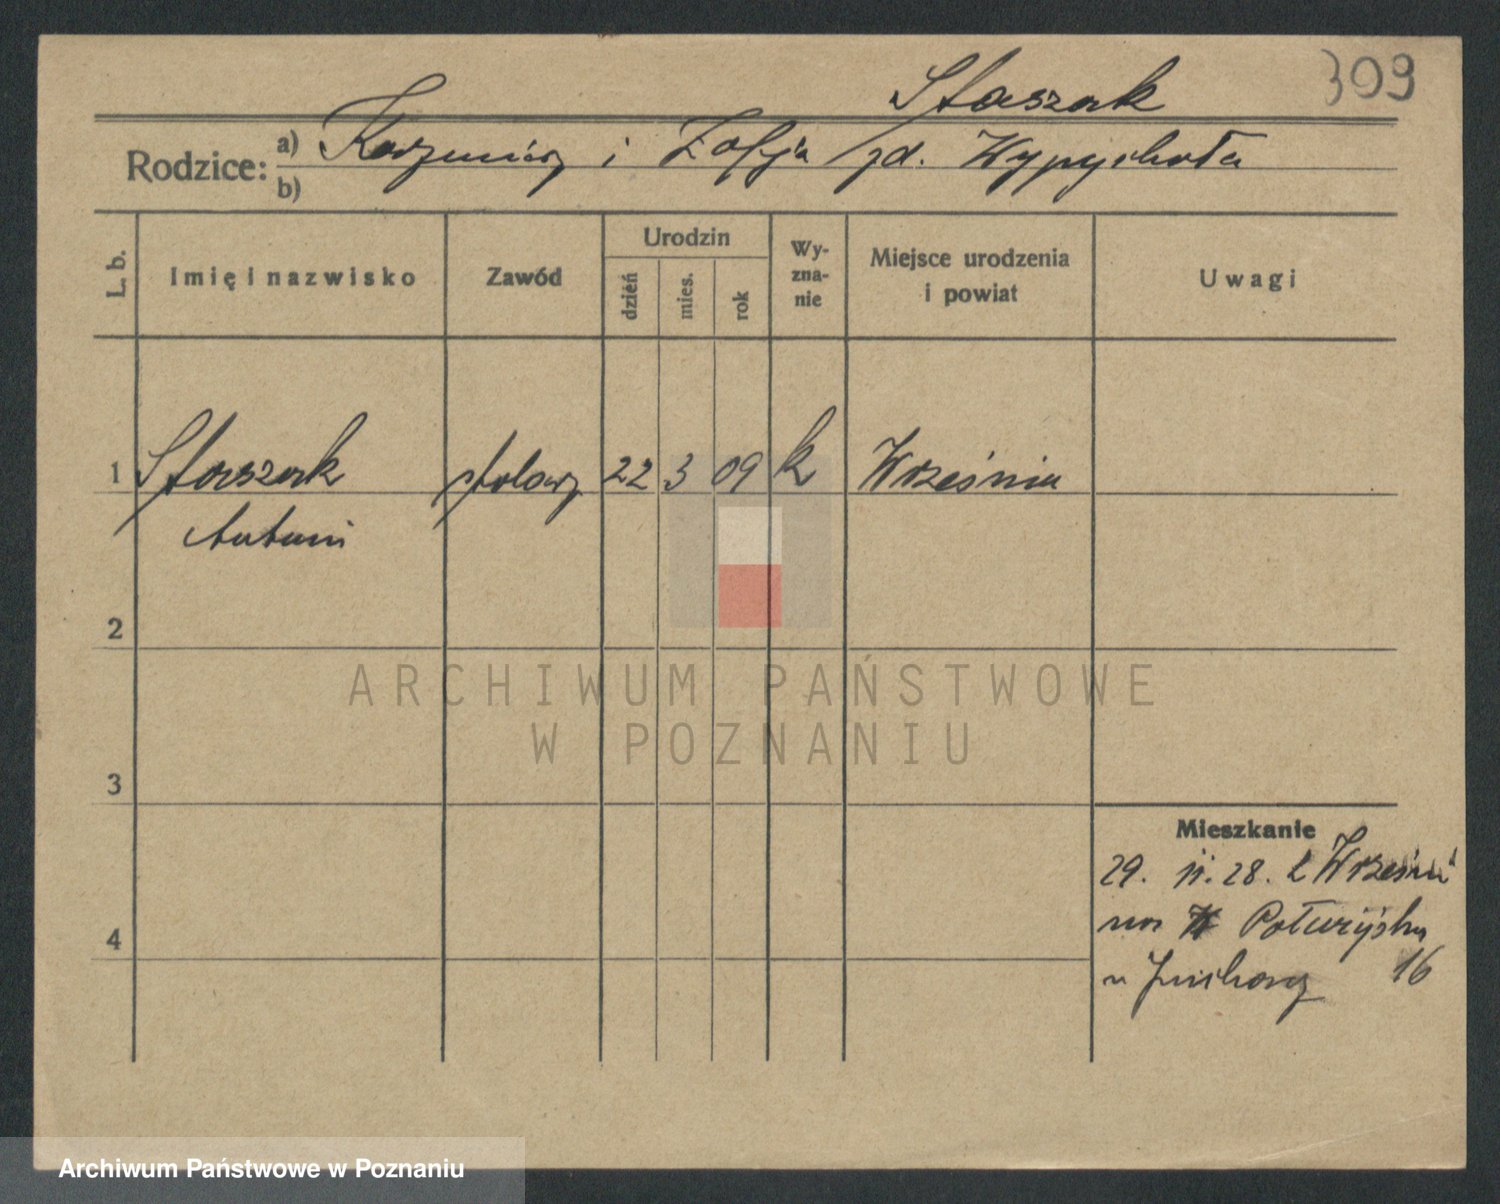 309
Staszak
Rodzice: a) Kazimierz i Zofja zd. Wypychała
b)
L. b.
Imię i nazwisko
Zawód
Urodzin
dzień
mies.
rok
Wy-
zna-
nie
Miejsce urodzenia
i powiat
Uwagi
1 Staszak stolarz 22 3 09 k Września
Antoni
2
3
4
Mieszkanie
29. 11. 28. z Wrześni
na Poturzyska
u 16
ARCHIWUM PAŃSTWOWE
W POZNANIU
Archiwum Państwowe w Poznaniu